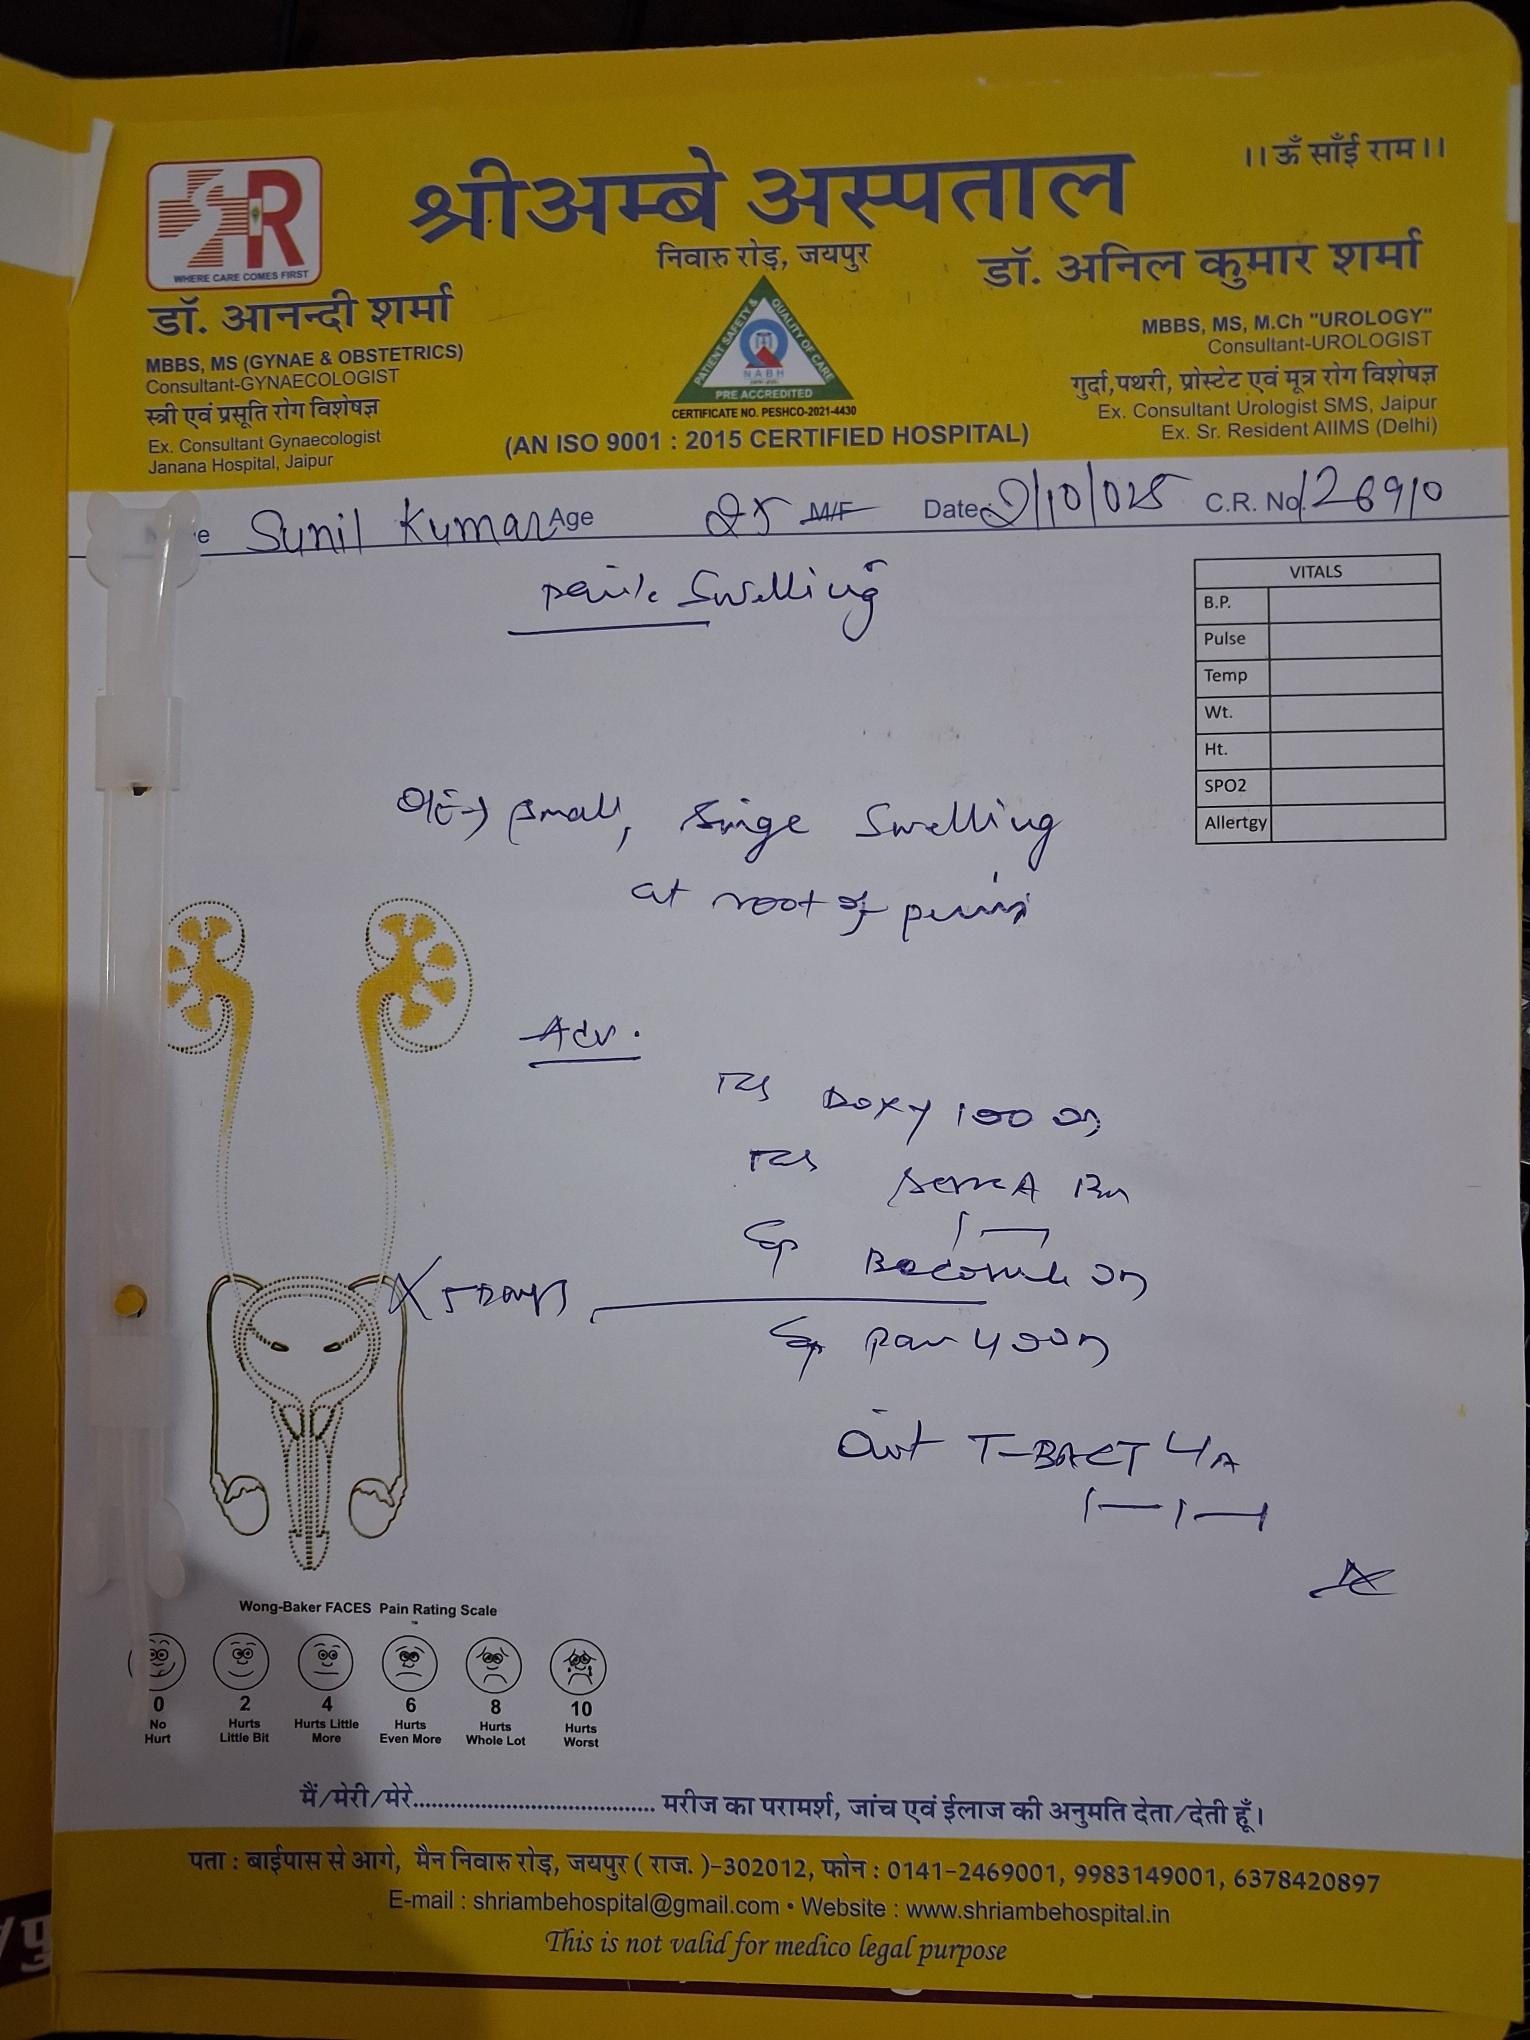 ।। ॐ साँई राम ।।
SR
WHERE CARE COMES FIRST
श्रीअम्बे अस्पताल
निवारु रोड़, जयपुर
डॉ. आनन्दी शर्मा
MBBS, MS (GYNAE & OBSTETRICS)
Consultant-GYNAECOLOGIST
स्त्री एवं प्रसूति रोग विशेषज्ञ
Ex. Consultant Gynaecologist
Janana Hospital, Jaipur
PATIENT SAFETY & QUALITY OF CARE
NABH
PRE ACCREDITED
CERTIFICATE NO. PESHCO-2021-4430
(AN ISO 9001 : 2015 CERTIFIED HOSPITAL)
डॉ. अनिल कुमार शर्मा
MBBS, MS, M.Ch "UROLOGY"
Consultant-UROLOGIST
गुर्दा,पथरी, प्रोस्टेट एवं मूत्र रोग विशेषज्ञ
Ex. Consultant Urologist SMS, Jaipur
Ex. Sr. Resident AIIMS (Delhi)
Sunil Kumar Age 25 M/F Date 2/10/025 C.R. No. 126910
Penile Swelling
VITALS
B.P.
Pulse
Temp
Wt.
Ht.
SPO2
Allertgy
O/E → small, singe swelling
at root of penis
Adv.
Doxy 100
Cap
X 5 Days
Cap Pan 40
Oint T-BACT LA
Wong-Baker FACES Pain Rating Scale
™
0 2 4 6 8 10
No Hurt
Hurts Little Bit
Hurts Little More
Hurts Even More
Hurts Whole Lot
Hurts Worst
मैं/मेरी/मेरे............................................ मरीज का परामर्श, जांच एवं ईलाज की अनुमति देता/देती हूँ।
पता : बाईपास से आगे, मैन निवारु रोड़, जयपुर ( राज. )-302012, फोन : 0141-2469001, 9983149001, 6378420897
E-mail : shriambehospital@gmail.com • Website : www.shriambehospital.in
This is not valid for medico legal purpose